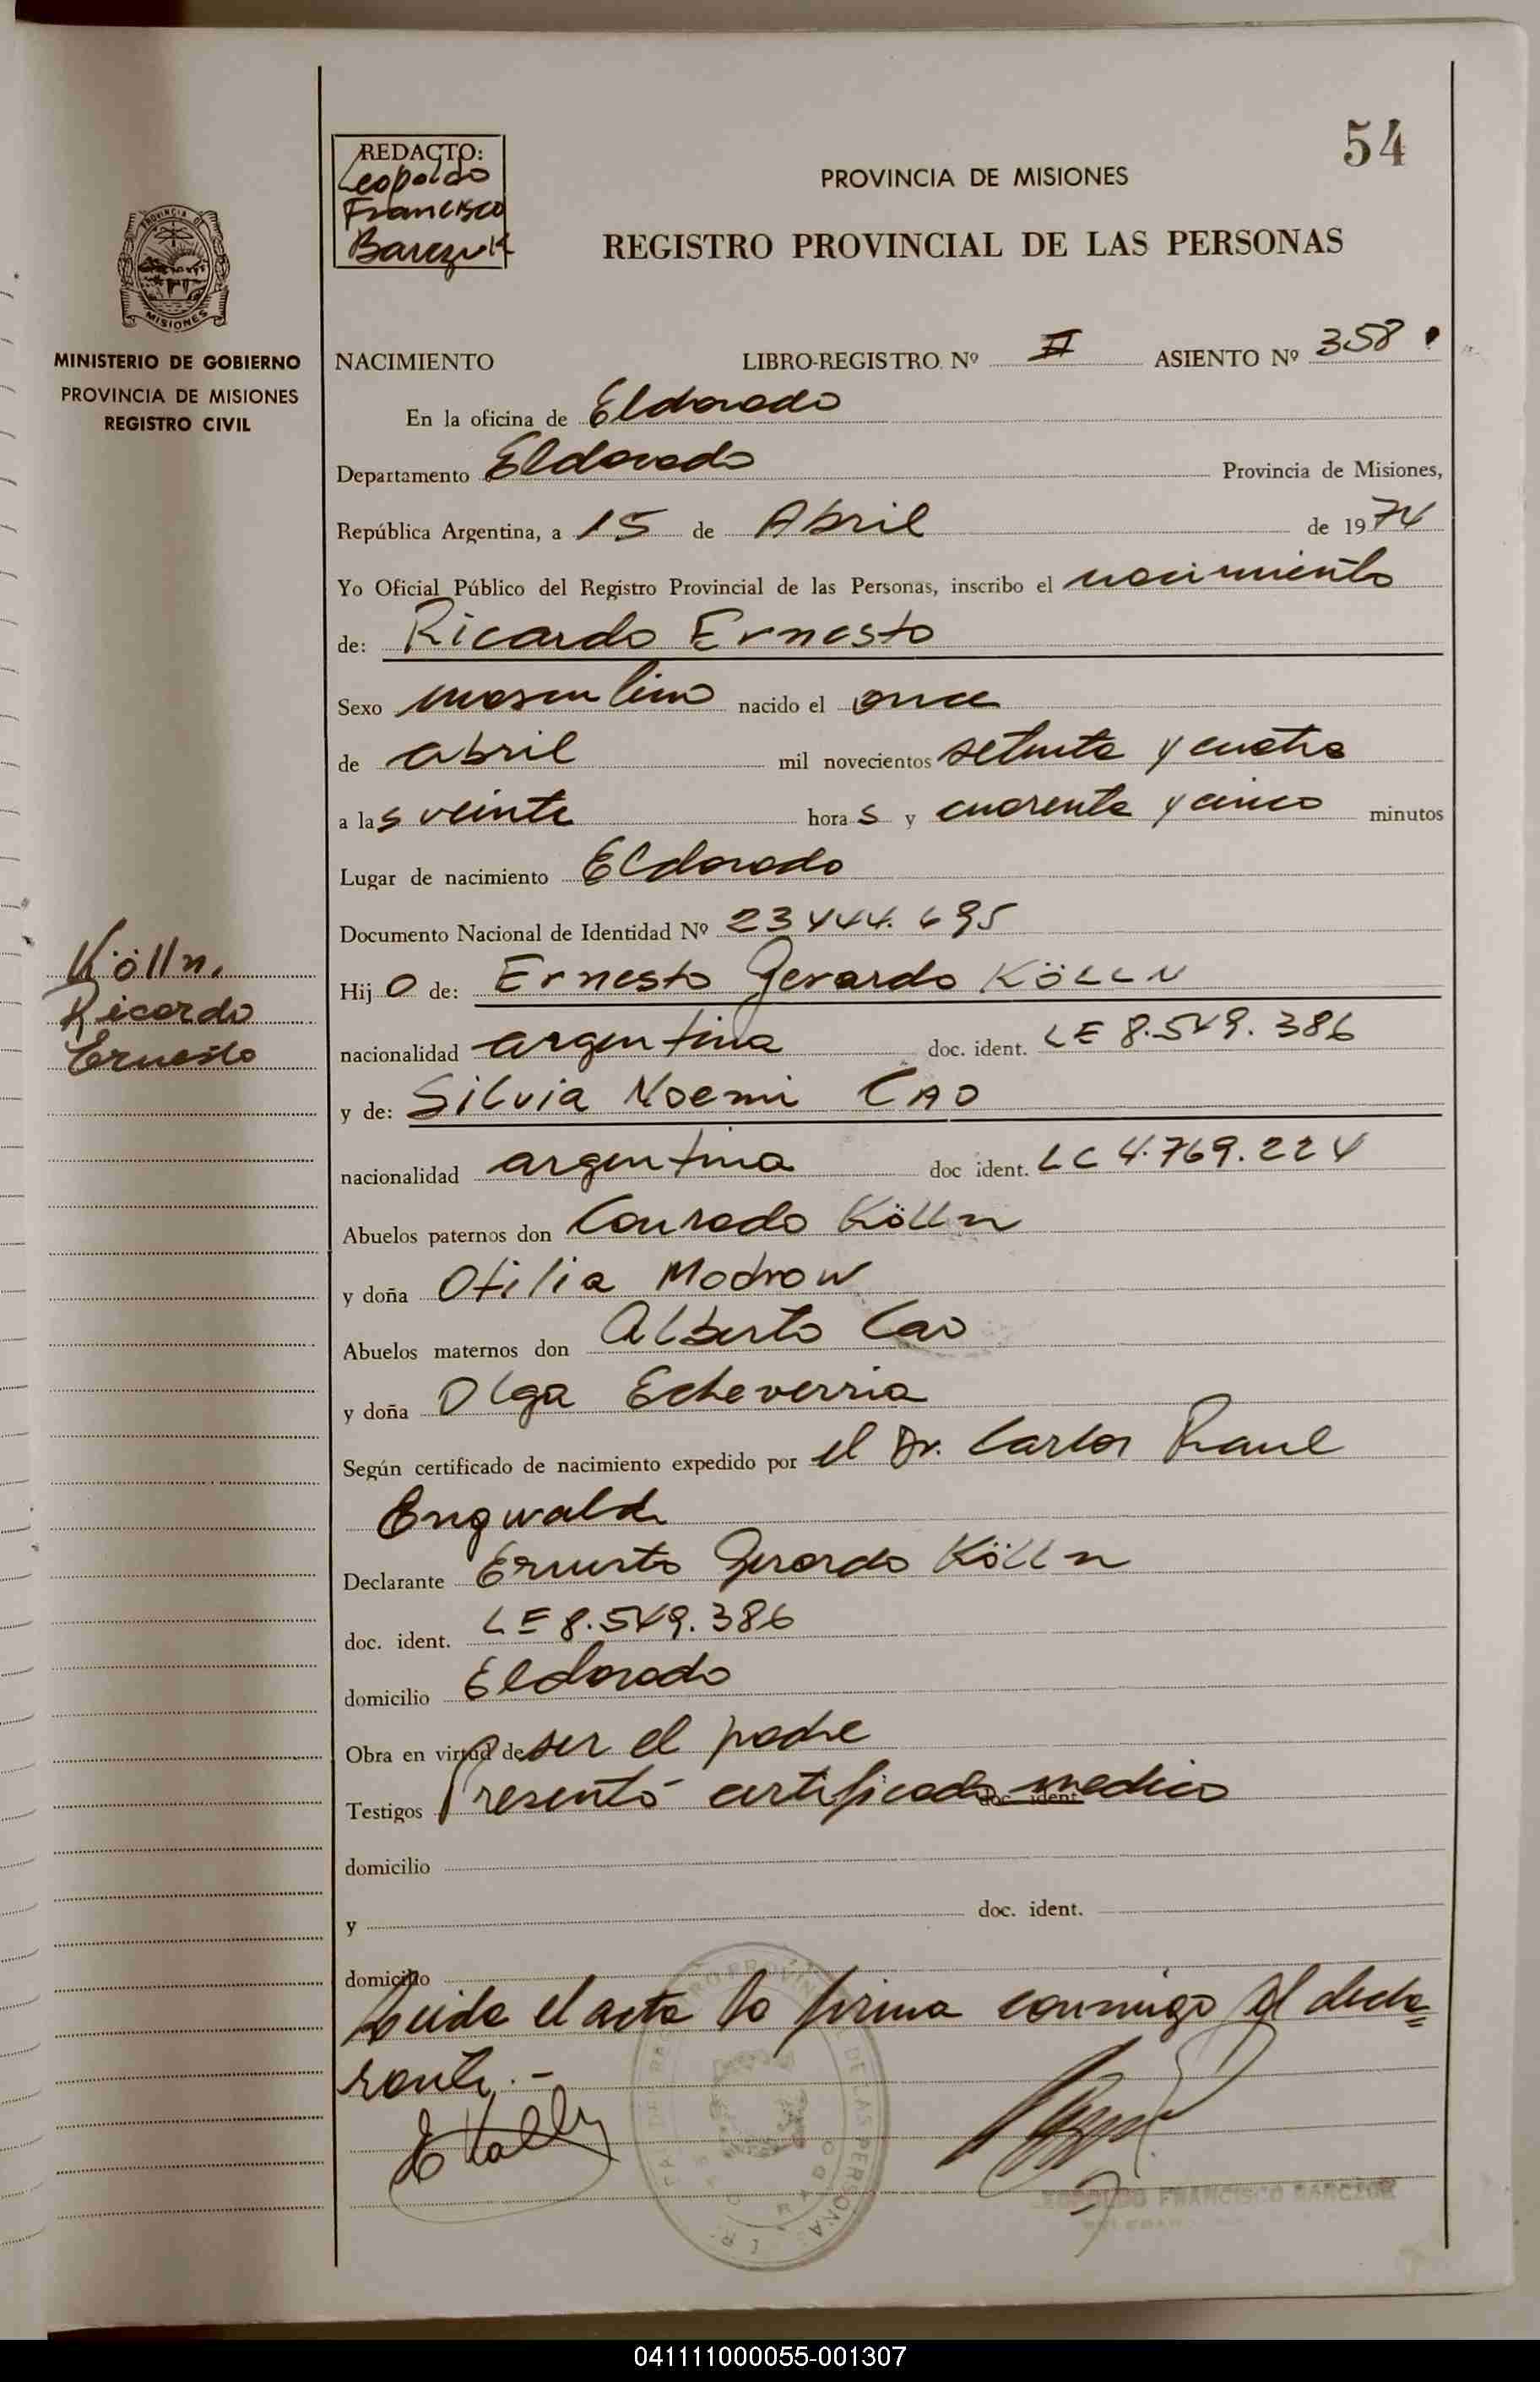 54
REDACTO:
Leopoldo
Francisco
Barczuk
PROVINCIA DE MISIONES
REGISTRO PROVINCIAL DE LAS PERSONAS
PROVINCIA DE
MISIONES
MINISTERIO DE GOBIERNO
PROVINCIA DE MISIONES
REGISTRO CIVIL
NACIMIENTO LIBRO-REGISTRO Nº II ASIENTO Nº 358
En la oficina de Eldorado
Departamento Eldorado Provincia de Misiones,
República Argentina, a 15 de Abril de 1974
Yo Oficial Público del Registro Provincial de las Personas, inscribo el nacimiento
de: Ricardo Ernesto
Sexo masculino nacido el once
de abril mil novecientos setenta y cuatro
a las veinte horas y cuarenta y cinco minutos
Lugar de nacimiento Eldorado
Documento Nacional de Identidad Nº 23444.695
Kölln,
Ricardo
Ernesto
Hijo de: Ernesto Gerardo KÖLLN
nacionalidad argentina doc. ident. LE 8.549.386
y de: Silvia Noemi CAO
nacionalidad argentina doc ident. LC 4.769.224
Abuelos paternos don Conrado Kölln
y doña Otilia Modrow
Abuelos maternos don Alberto Cao
y doña Olga Echeverria
Según certificado de nacimiento expedido por el Dr. Carlos Raul
Engwald
Declarante Ernesto Gerardo Kölln
doc. ident. LE 8.549.386
domicilio Eldorado
Obra en virtud de ser el padre
Testigos Presentó certificado doc. ident medico
domicilio
y doc. ident.
domicilio
Leida el acta la firma conmigo el decla=
rante.-
LEOPOLDO FRANCISCO BARCZUK
041111000055-001307